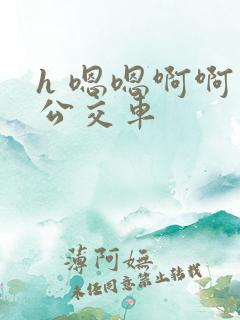 h 嗯嗯啊啊
公交车
薄阿嫵
未经同意禁止转载